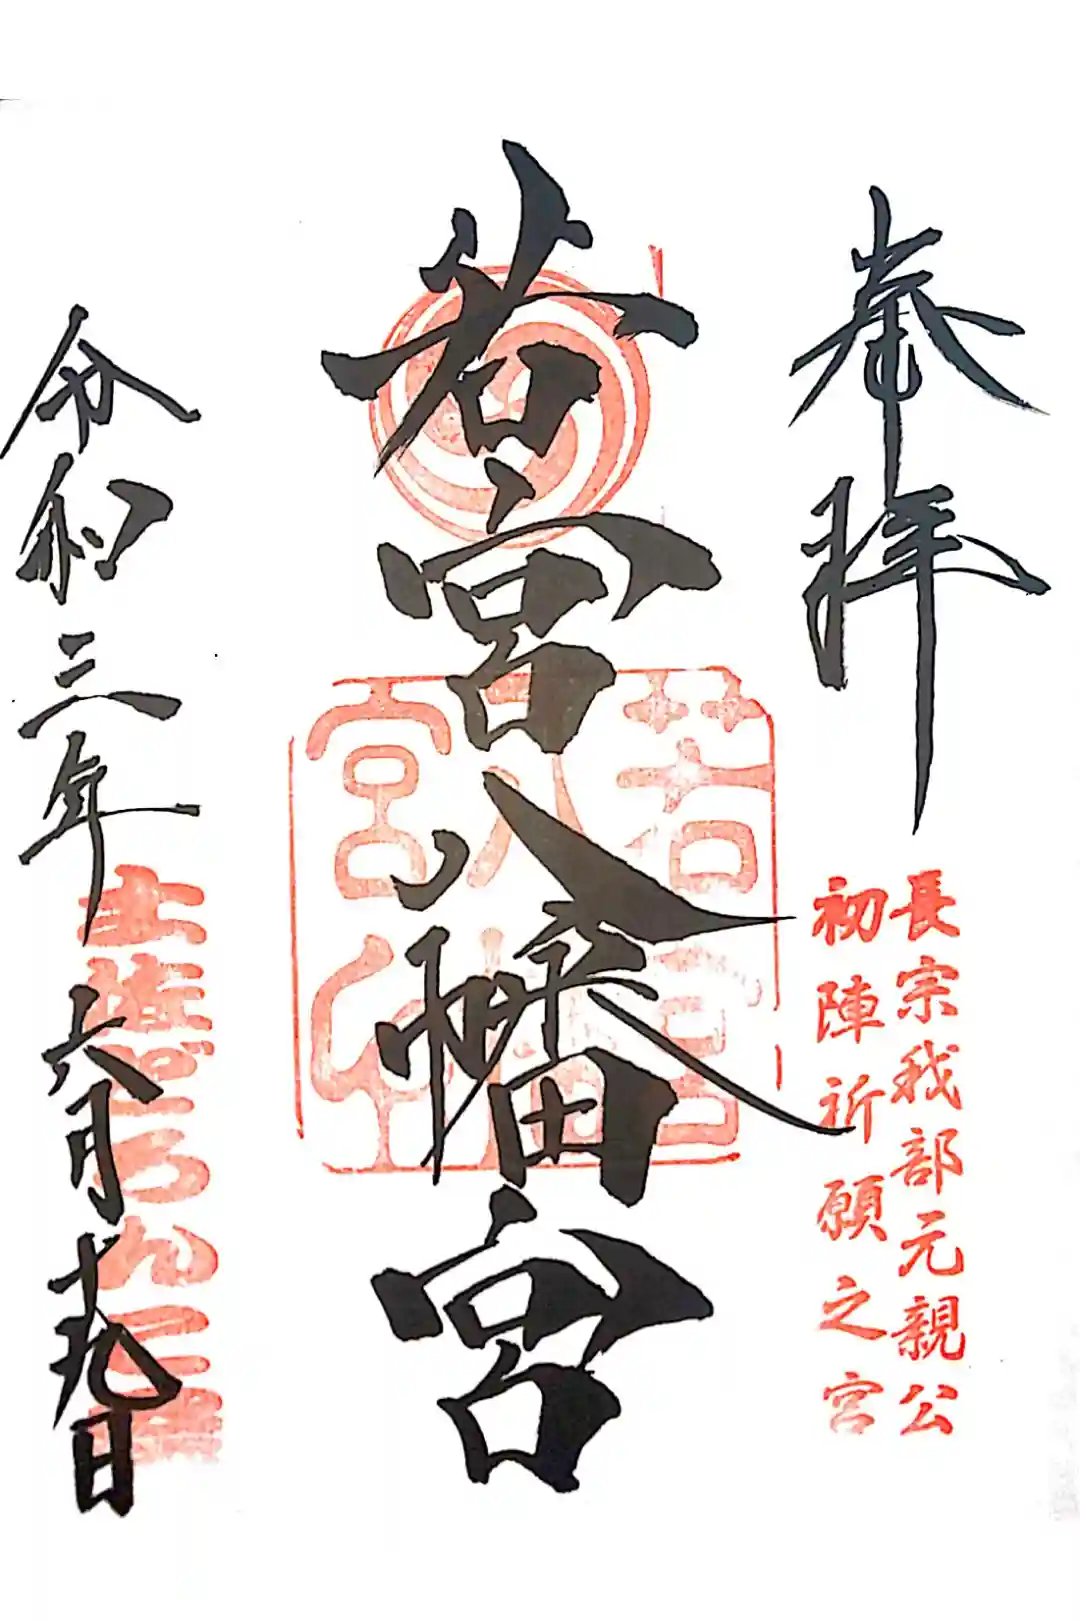 奉拝
長宗我部元親公
初陣祈願之宮
若宮八幡宮
若宮八幡宮
令和三年六月十九日
土佐どろんこ